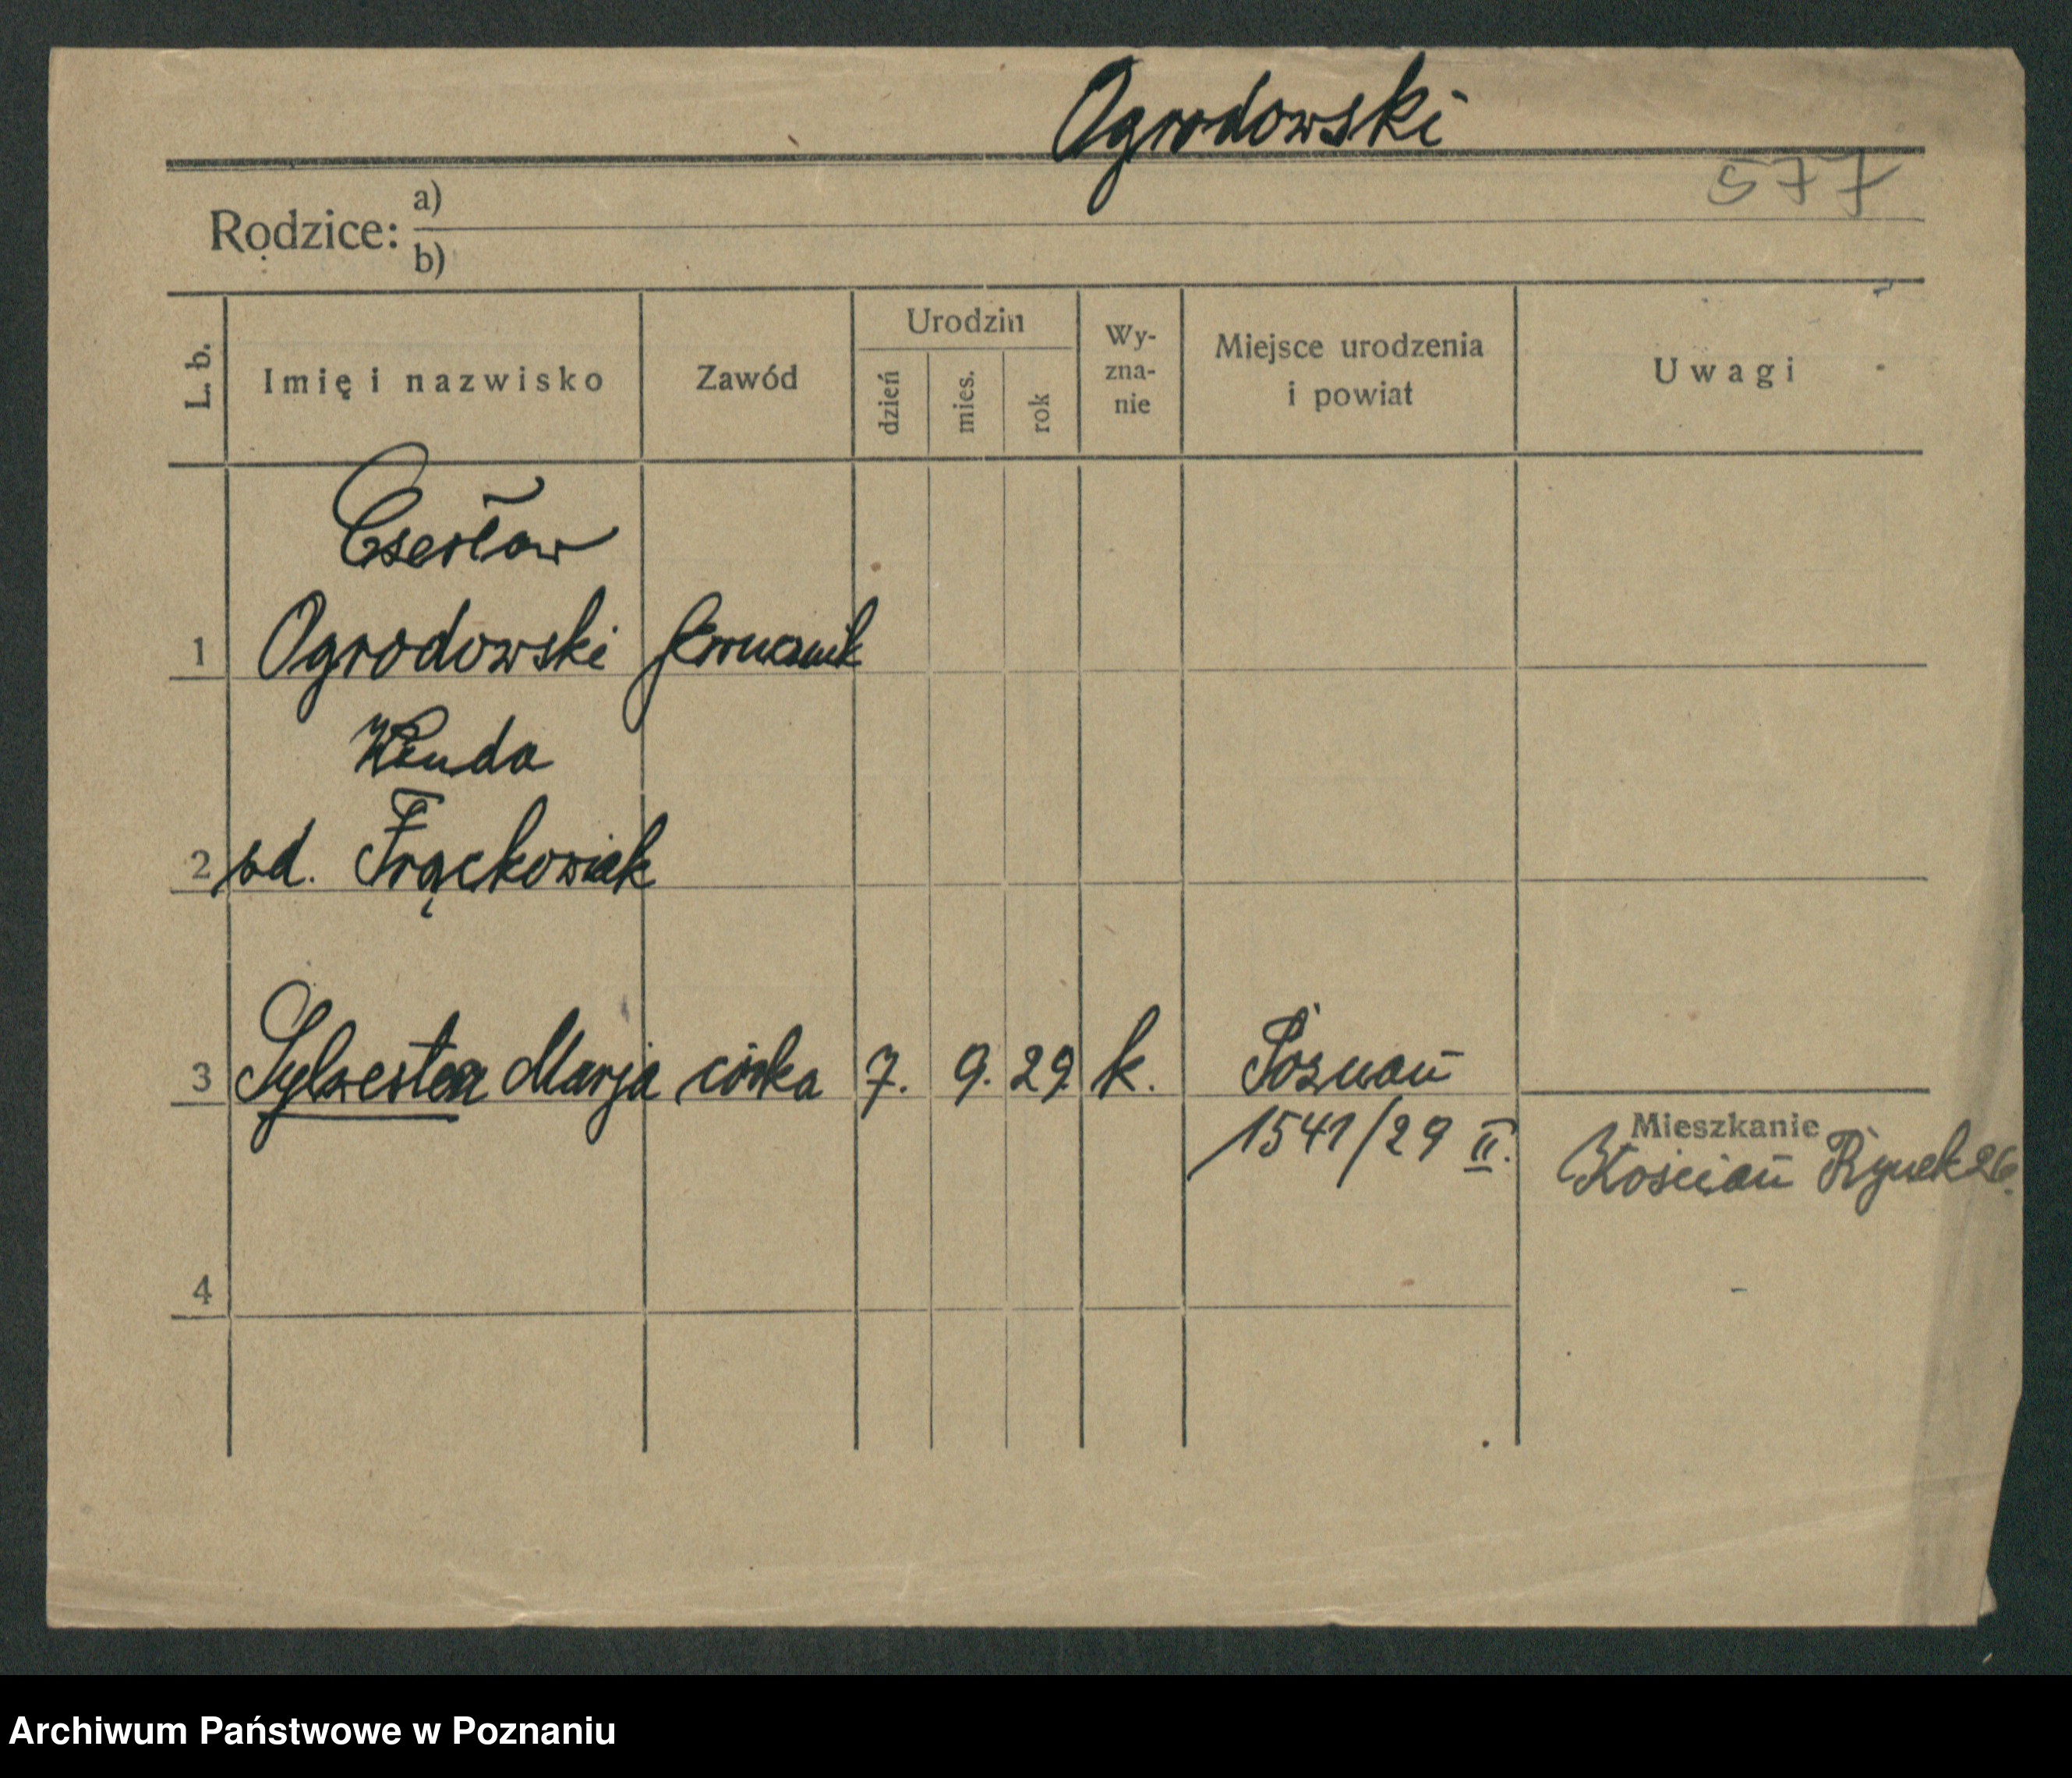 Ogrodowski
577
Rodzice: a)
b)
L. b.
Imię i nazwisko
Zawód
Urodzin
dzień
mies.
rok
Wy-
zna-
nie
Miejsce urodzenia
i powiat
Uwagi
Czesław
1 Ogrodowski porucznik
Wanda
2 zd. Frąckowiak
3 Sylwestra Marja córka 7. 9. 29. k. Poznań
1541/29 II.
Mieszkanie
Kościan Rynek 26.
4
Archiwum Państwowe w Poznaniu